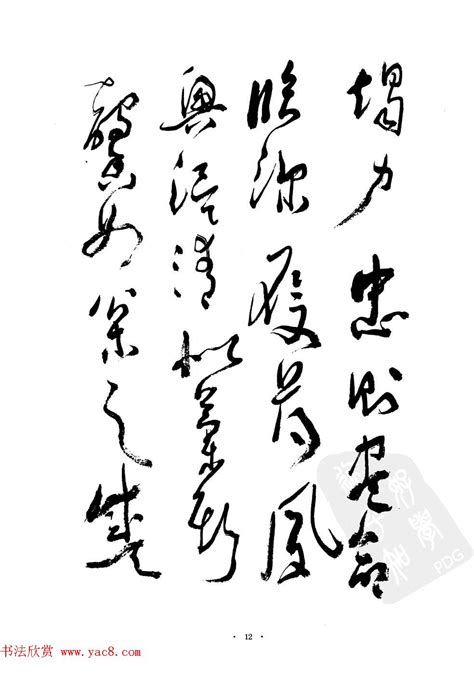 竭力忠則盡命
臨深履薄夙
興温清似蘭斯
馨如松之盛
PDG
· 12 ·
书法欣赏 www.yac8.com